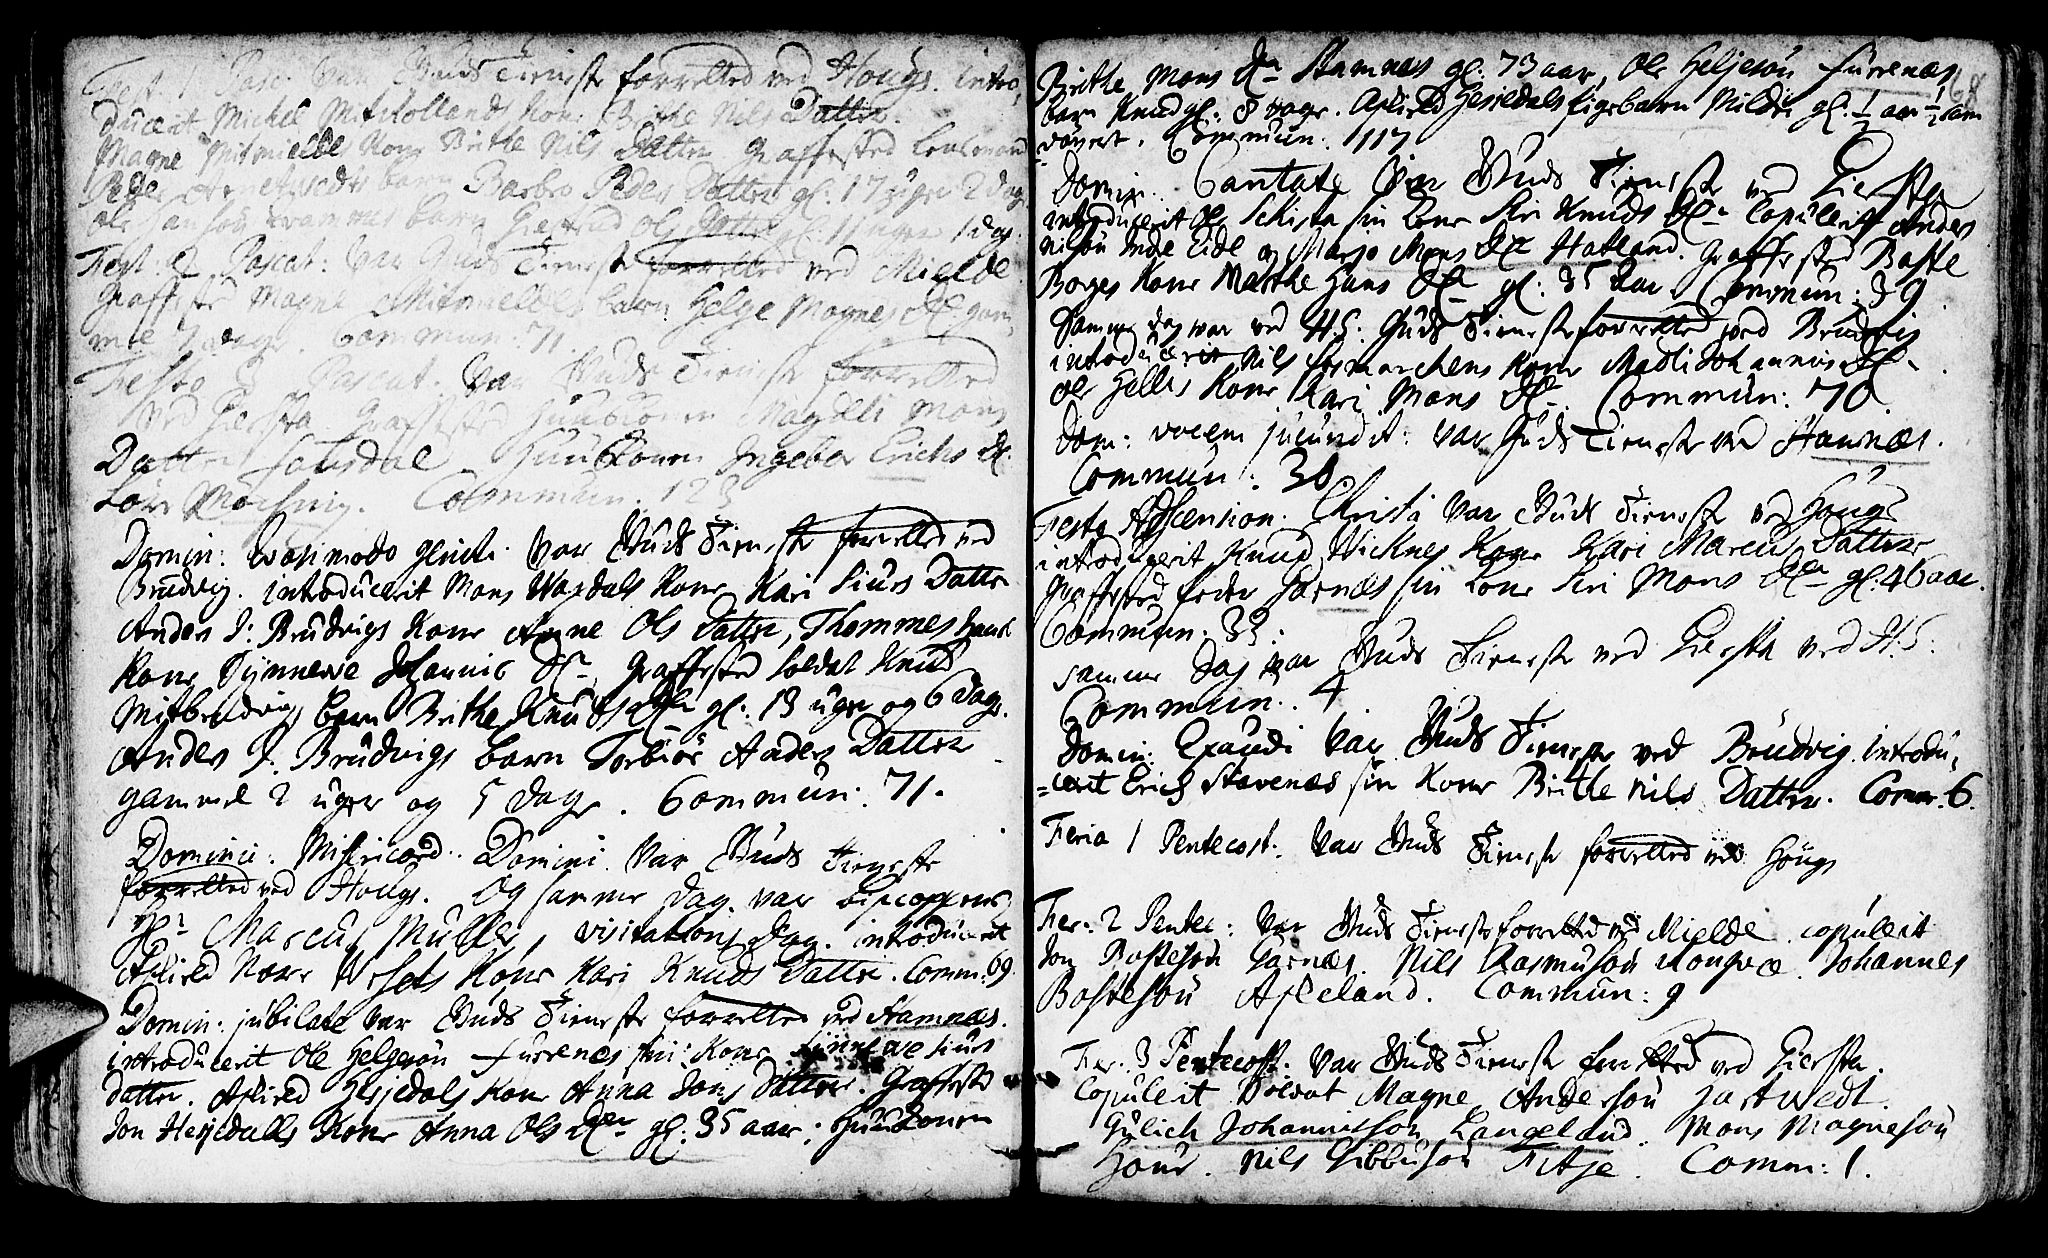 Fest: 1 Pasc: var Guds Tieneste forretted ved Houg. intro,
ducerit Michel Mitskollands kone Brithe Nils Datter.
Magne Mitmielde kone Brithe Nils Datter Graffested Lensmand
Peder barn Barbro Peders Datter gl: 17 uger 2 dage
Ole Hansøn barn Giertrud Ols Datter gl 11 uger 1 dag.
Fest: 2 Pascat: var Guds Tieneste forretted ved Mielde
Graffested Magne Mitmieldes barn Helge Magnes dtr gam,
mel 7 dage. Commun: 71.
Festo 3 Pascat: var Guds Tieneste forretted
ved Giersta. Grafested Huuskonen Magdeli Mons
Datter Fossdal Huuskonen Ingebor Erichs dr.
Commun. 123
Domin: Quasimodo geniti var Guds Tieneste forretted ved
Brudvig. introducerit Mons Vaxdals kone Kari Siurs Datter
Anders I: Brudvigs kone Anne Ols Datter, Thommes
kone Synneve Johannis Dr Graffested soldat Knud
Mitbrudvigs barn Brithe Knuds dtr gl: 13 uger og 6 Dage.
Anders I: Brudvigs barn Torbiør Anders Datter
gammel 2 uger og 5 dage. Commun: 71.
Dominic: Misericord: Domini var Guds Tieneste
forretted ved Houg. Og samme dag var Biscoppens
Hr Marcus Muller, visitations Dag. introducerit
Aslied kone Kari Knuds Datter. Comm: 69.
Domin: jubilate var Guds Tieneste forretted ved Stamnæs.
introducerit Ole Helgesøn Furrenes sin kone Sinneve Siurs
Datter. Aslied Hesjedals kone Anna Jons Datter. Graffested
Jon Hesjedals kone Anna Ols dter gl: 35 aar; Huuskonen
Brithe Mons dr Stamnes gl: 73 aar, Ole Heljesøn Furrenes
barn Knud gl: 8 dage. Aslied Hesjedals pigebarn Mildri gl. 1/2 aar
døpert. Commun: 1117
Domin: Cantate var Guds Tieneste ved Giersta
introducerit Ole sin kone Siri Knuds dr Copulerit Anders
Nilsøn Inde Eide og Marjo Mons dtr Hatland. Graffested Baste
Borges kone Marthe Hans dr gl: 35 aar Commun: 39
Samme dag var ved H S. Guds Tieneste forretted ved Brudvig
introducerit Nils Fosmarchens kone Madli Johannis dr
Ole Hellis kone Kari Mons dr. Commun: 70.
Dom: vocem jucundit: var Guds Tieneste ved Stamnes.
Commun: 30
Festo Ascension: Christi var Guds Tieneste ved Houg
introducerit Knud Vicknes kone Kari Marcus Datter
Graffested Peder Garnes sin kone Siri Mons dter gl. 46 aar.
Commun: 33.
samme Dag var Guds Tieneste ved Giersta ved H. S.
Commun: 4
Domin: Exaudi var Guds Tieneste ved Brudvig. introdu,
=cerit Erich Stavenes sin kone Brithe Nils Datter. Comm. 6.
Feria 1 Pentecost: var Guds Tieneste forretted ved Houg
Fer: 2 Pentec: var Guds Tieneste forretted ved Mielde. copulerit
Jon Bastesøn Garnes. Nils Rasmusøn Rongve. Johannes
Bastesøn Aseland. Commun: 9
Fer: 3 Pentecost: var Guds Tieneste forretted ved Giersta.
Copulerit Soldat Magne Andersøn Hartvedt.
Gulich Johannisson Langeland. Mons Magnesøn
Houg. Nils Gibbusøn Fitje. Comm: 1.